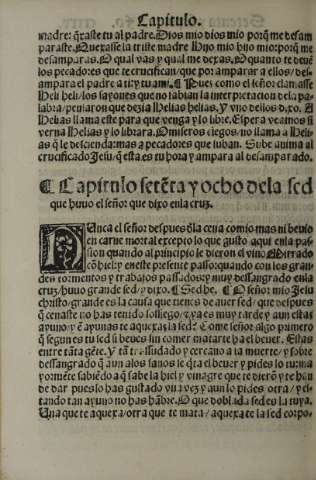 Capitulo.
madre: q̄raste tu al padre. Dios mio dios mio porq̄ me desam
paraste. Quexasse la triste madre Hijo mio hijo mio: porq̄ me
desamparas. O qual vas y qual me dexas. O quanto te deuē
los pecadores que te crucifican/que por amparar a ellos/des-
ampara el padre a ti: y tu a mi. ¶ Pues como el señor clamasse
Heli heli/los sayones que no sabian la interpretacion dela pa-
labra/pensaron que dezia Helias helias. Y vno delios dixo. A
Helias llama este para que venga y lo libre. Espera veamos si
verna Helias y lo librara. O miseros ciegos/no llama a Heli-
as q̄ le descienda: mas a pecadores que suban. Sube anima al
crucificado Jesu/que esta es tu hora y ampara al desamparado.
¶ Capitulo setēta y ocho dela sed
que huuo el señor que dixo enla cruz.
Nunca el señor despues ďla cena comio mas ni beuio
en carne mortal excepto lo que gusto aqui enla pas
sion quando al principio le dieron el vino Mirrado
cō hiel: y en este presente passo: quando con los gran-
des tormentos y trabajos passados: y muy dessangrado enla
cruz/huuo grande sed/y dixo. ¶ Sed he. ¶ O señor mio Jesu
christo/grande es la causa que tienes de auer sed/que despues
q̄ cenaste no has tenido sossiego: y ya es muy tarde y aun estas
ayuno/y ē ayunas te aquexa la sed? Come señor algo primero
q̄ segun es tu sed si beues sin comer matarte ha el beuer. Estas
entre tāta gēte. Y tā trassudado y cercano a la muerte/y sobre
dessangrado q̄ aun alos sanos le q̄ta el beuer y pides lo
y ornēte sabiēdo q̄ sabe la hiel y vinagre que te dierō y te han
de dar pues lo has gustado vna vez y aun lo pides otra/y es-
tando tan ayuno no has hābre. O que doblada sed es la tuya.
Una que te aquexa/otra que te mata/aquexa te la sed corpo-